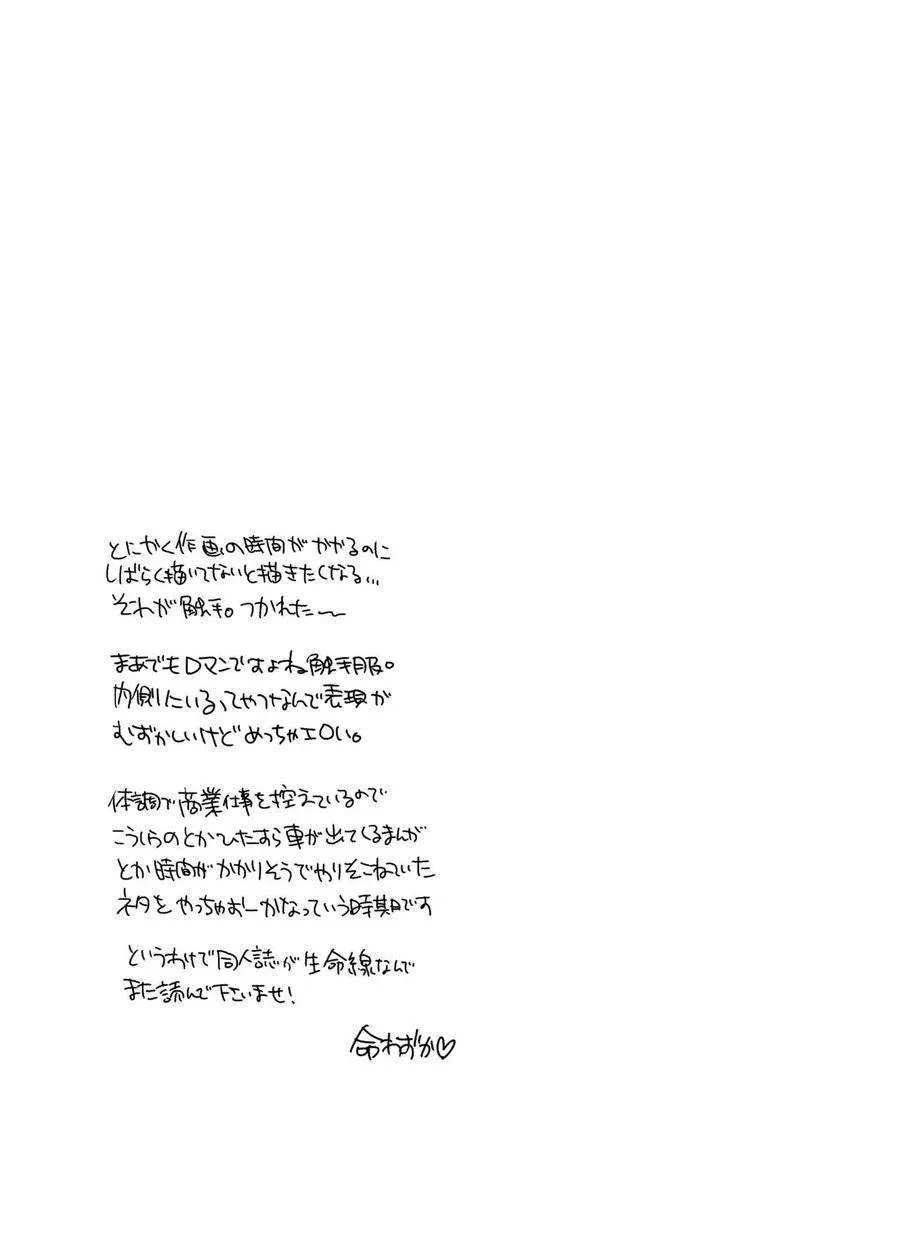 とにかく作画の時間がかかるのに
しばらく描いてないと描きたくなる…
それが触手。つかれたー
まあでもロマンですよね触手服。
内側にいるってやつなんで表現が
むずかしいけどめっちゃエロい。
体調で商業仕事を控えているので
こうしらのとかひたすら車が出てくるまんが
とか時間がかかりそうでやりそこねていた
ネタをやっちゃおーかなっていう時期です
というわけで同人誌が生命線なんで
また読んで下さいませ!
命わずか♡